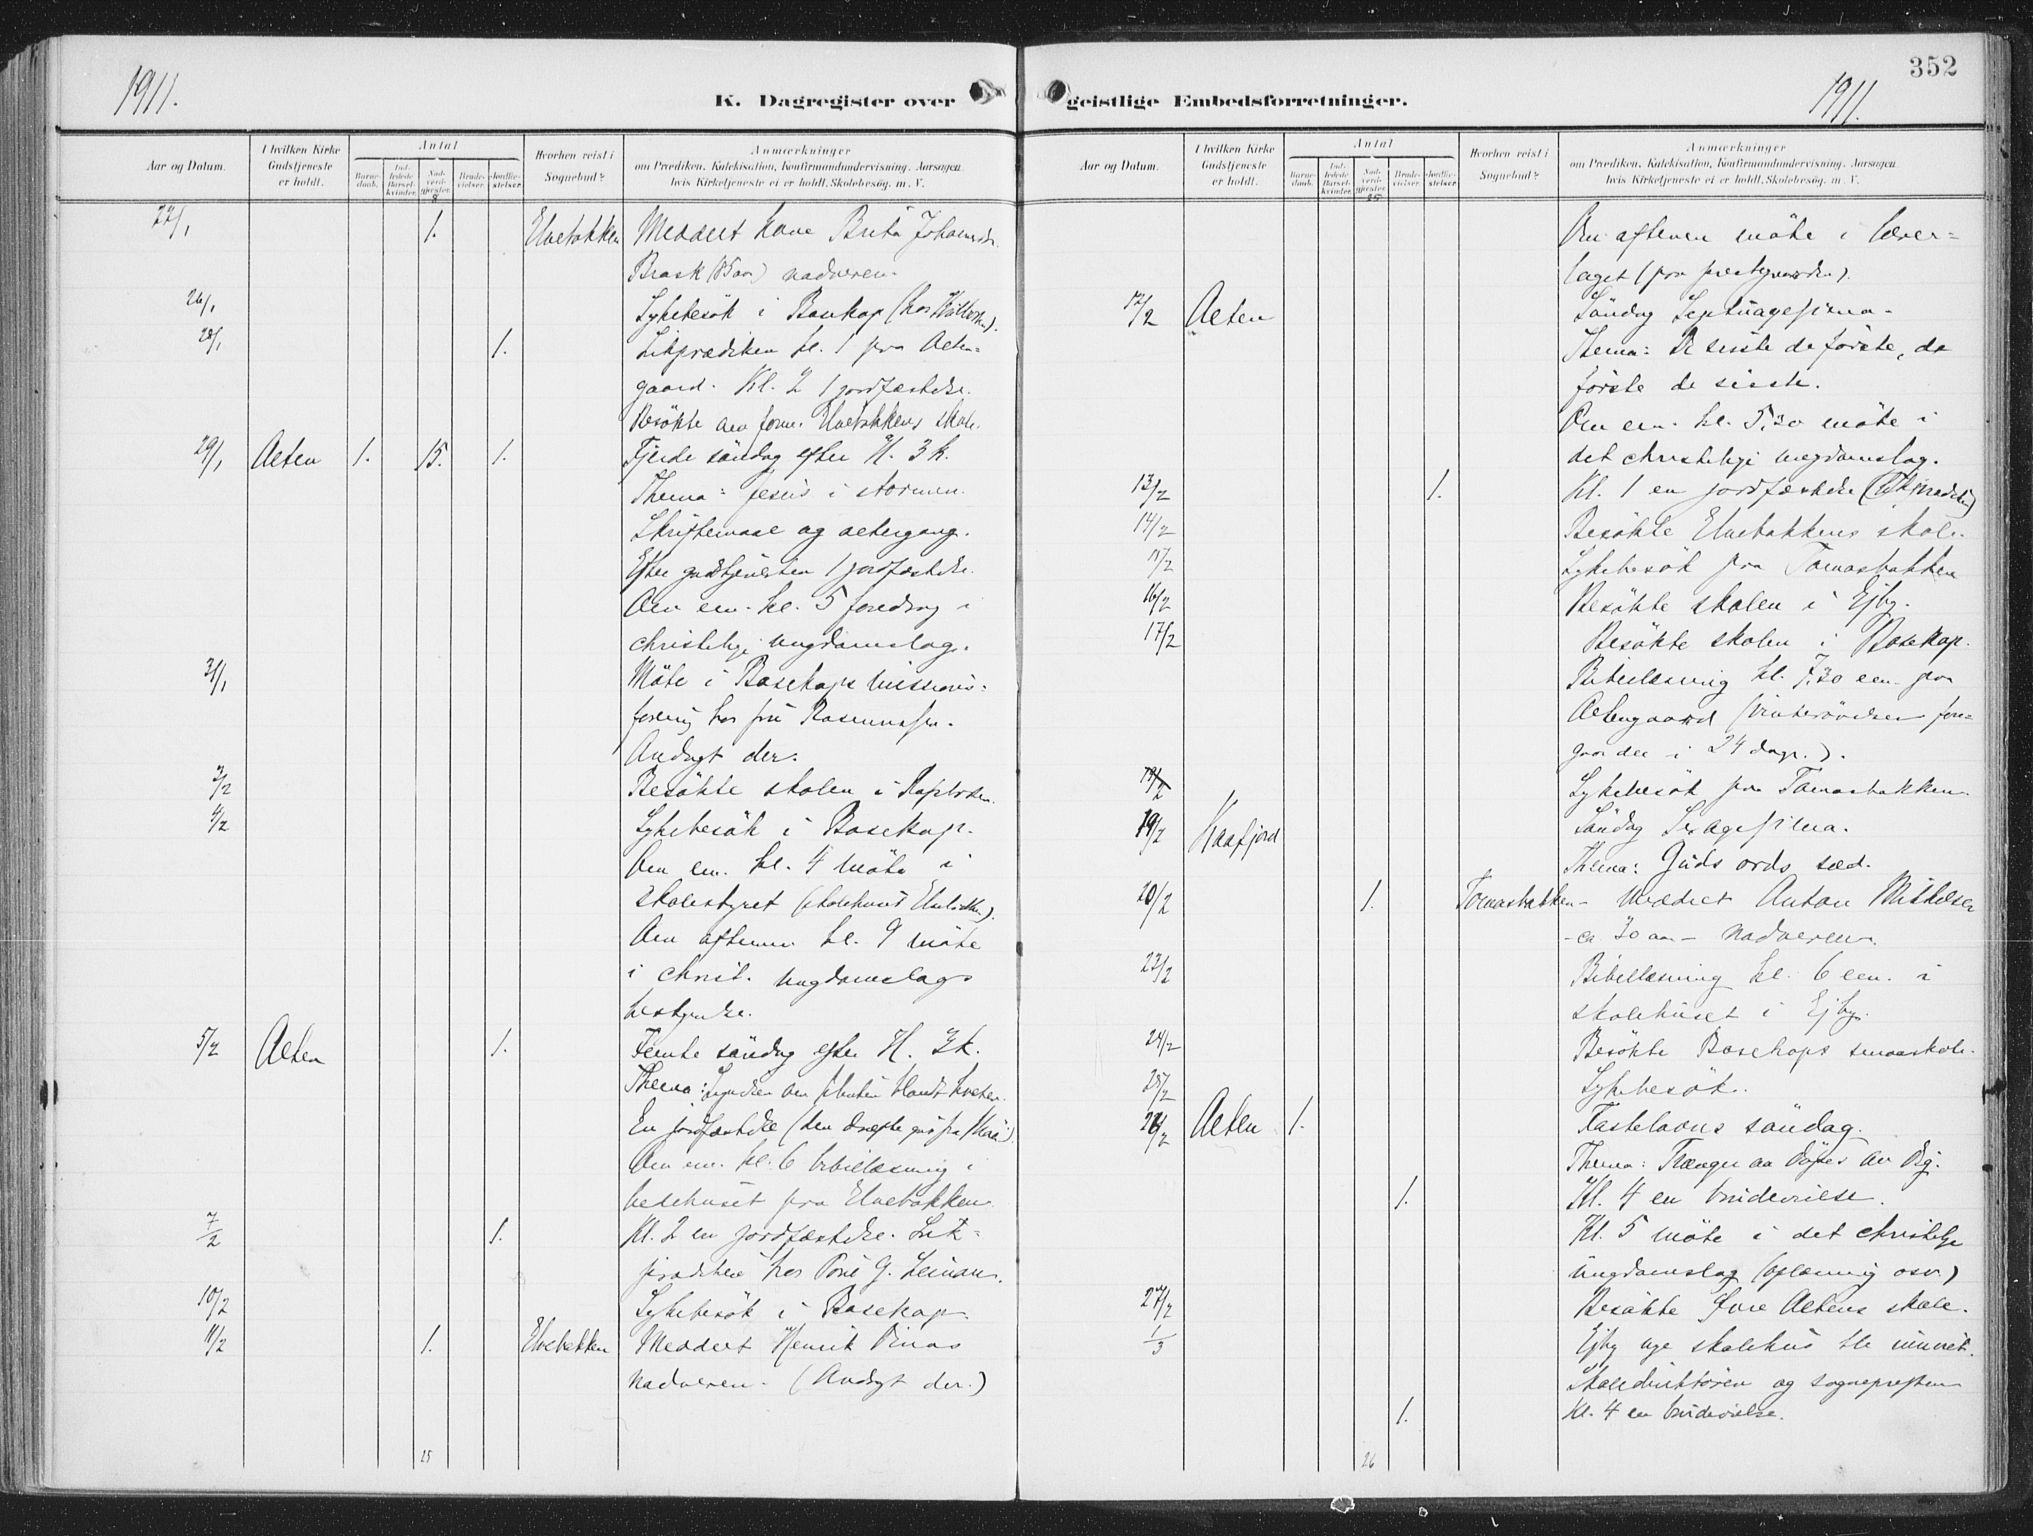 1911.
K. Dagregister over
Aar og Datum.
I hvilken Kirke Gudstjeneste er holdt.
Antal
Barnedaab.
Indledede Barselkvinder.
Nadverdgjester.
Brudevielser.
Jordfæstelser.
Hvorhen reist i Sognebud?
Anmærkninger
om Prædiken, Katekisation, Konfirmandundervisning, Aarsagen
hvis Kirketjeneste ei er holdt, Skolebesøg, m. V.
22/1 1. Elvebakken Meddelt kone Brita Johannesdr.
Brask (85 aar) nadveren.
26/1 Sykebesök i Bosekop
28/1 1. Likprædiken kl. 1 paa Alten-
gaard. Kl. 2 1 jordfæstelse.
Besökte Elvebakkens skole.
29/1 Alten 1. 15. 1. Fjerde söndag efter H. 3 k.
Thema: Jesus i stormen.
Skriftemaal og altergang.
Efter gudstjenesten 1 jordfæstelse.
Om em. kl. 5 foredrag i
christelige ungdomslag.
31/1 Möte i Bosekops missions-
forening hos fru
Andagt der.
3/2 Besökte skolen i
4/2 Sykebesök i Bosekop.
Om em. kl. 4 möte i
skolestyret (skolehuset Elvebakken).
Om aftenen kl. 9 möte
i christ. ungdomslags
bestyrelse.
5/2 Alten 1. Femte söndag efter H. 3 k.
Thema: blandt hveten.
En jordfæstelse
Om em. kl. 6 bibellæsning i
bedehuset paa Elvebakken.
7/2 1. Kl. 2 en jordfæstelse. Lik-
prædiken hos
10/2 Sykebesök i Bosekop.
11/2 1. Elvebakken Meddelt Henrik
nadveren. (Andagt der.)
25
352
1911.
geistlige Embedsforretninger.
Aar og Datum.
I hvilken Kirke Gudstjeneste er holdt.
Antal
Barnedaab.
Indledede Barselkvinder.
Nadverdgjester.
Brudevielser.
Jordfæstelser.
Hvorhen reist i Sognebud?
Anmærkninger
om Prædiken, Katekisation, Konfirmandundervisning, Aarsagen
hvis Kirketjeneste ei er holdt, Skolebesøg, m. V.
25
Om aftenen möte i lærer-
laget (paa prestegaarden).
12/2 Alten Söndag Septuagesima.
Thema: De sisste de förste, de
förste de sisste.
Om em. kl. 5.30 möte i
det christelige ungdomslag.
13/2 1. Kl. 1 en jordfæstelse (Likprædiken)
14/2 Besökte Elvebakkens skole.
Sykebesök paa Tomasbakken
16/2 Besökte skolen i Ejby.
17/2 Besökte skolen i Bosekop.
Bibellæsning kl. 7.30 em. paa
Altengaard (vinterövelser fore-
gaar der i 24 dage.).
Sykebesök paa Tomasbakken.
19/2 Kaafjord Söndag Sexagesima.
Thema: Guds ords sæd.
20/2 1. Tomasbakken - Meddelt Anton Mikkelsen
- ca 30 aar - nadveren.
23/2 Bibellæsning kl. 6 em. i
skolehuset i Ejby.
24/2 Besökte Bosekops smaaskole.
25/2 Sykebesök.
26/2 Alten 1. Fastelavns söndag.
Thema: Trænger aa döpes av dig.
1. Kl. 4 en brudevielse.
Kl. 5 möte i det christelige
ungdomslag (oplæsning osv.)
27/2 Besökte Övre Altens skole.
1/3 Ejby nye skolehus ble innviet.
Skoledirektören og sogneprestem
1. Kl. 4 en brudevielse.
26